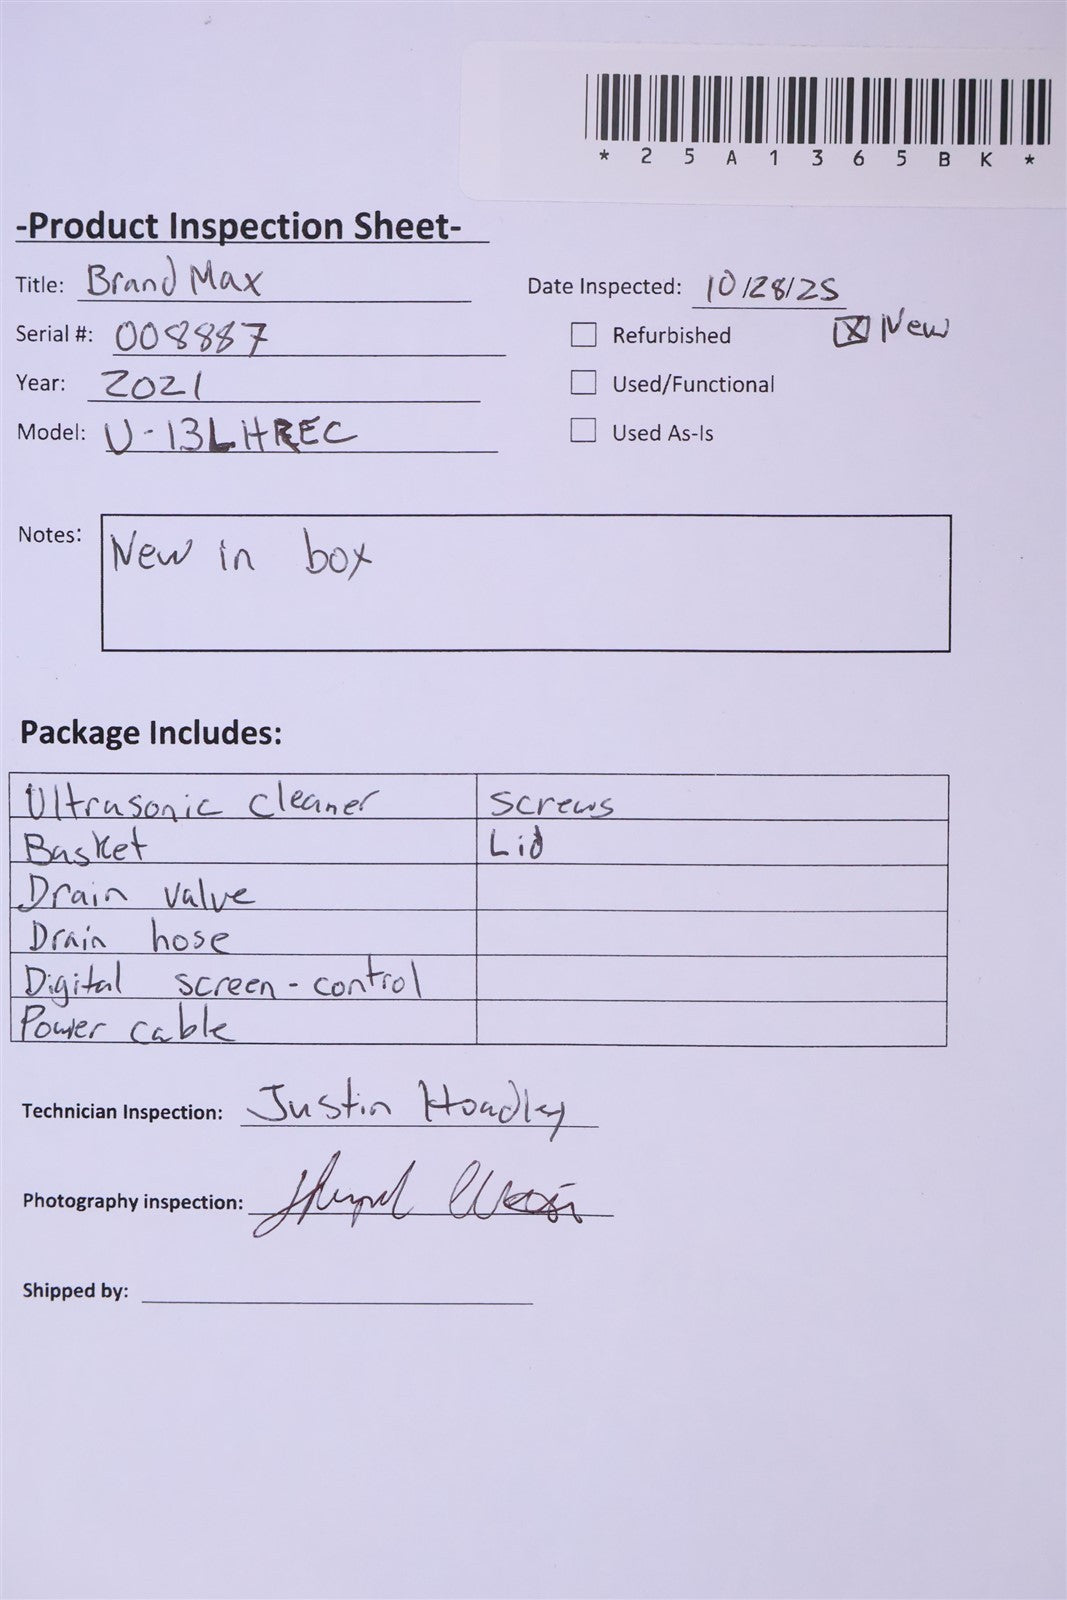 *25A1365BK*
-Product Inspection Sheet-
Title: Brand Max
Date Inspected: 10/28/25
Serial #: 008887
☐ Refurbished
☒ New
Year: 2021
☐ Used/Functional
Model: U-13LHREC
☐ Used As-Is
Notes: New in box
Package Includes:
Ultrasonic cleaner screws
Basket Lid
Drain valve
Drain hose
Digital screen-control
Power cable
Technician Inspection: Justin Hoadley
Photography inspection:
Shipped by: